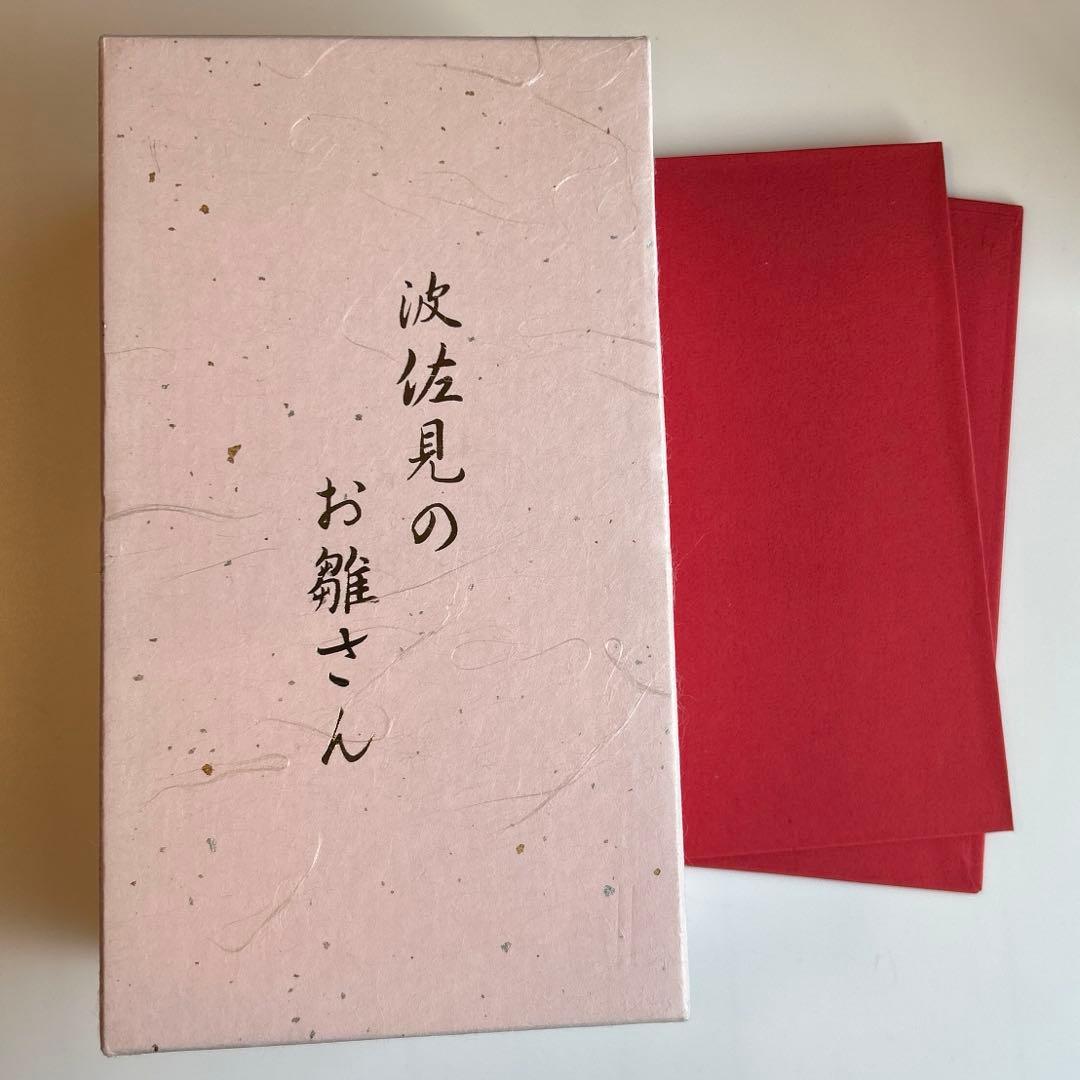 波佐見の
お雛さん